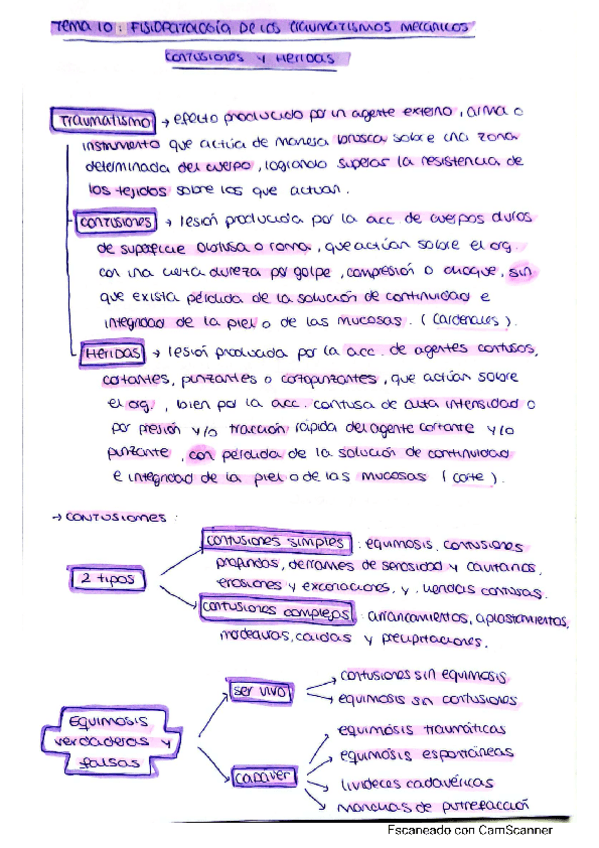 Tema 10: Fisiopatología de los traumatismos mecánicos
Contusiones y Heridas
Traumatismo → efecto producido por un agente externo, arma o
instrumento que actúa de manera brusca sobre una zona
determinada del cuerpo, logrando superar la resistencia de
los tejidos sobre los que actúan.
Contusiones → lesión producida por la acc. de cuerpos duros
de superficie obtusa o roma, que actúan sobre el org.
con una cierta dureza por golpe, compresión o choque, sin
que exista pérdida de la solución de continuidad e
integridad de la piel o de las mucosas. (Cardenales).
Heridas → lesión producida por la acc. de agentes contusos,
cortantes, punzantes o cortopunzantes, que actúan sobre
el org., bien por la acc. contusa de alta intensidad o
por presión y/o tracción rápida del agente cortante y/o
punzante, con pérdida de la solución de continuidad
e integridad de la piel o de las mucosas (corte).
→ contusiones:
2 tipos
contusiones simples: equimosis, contusiones
profundas, derrames de serosidad y cavitarios,
erosiones y excoriaciones, y heridas contusas.
contusiones complejas: arrancamientos, aplastamientos,
mordeduras, caídas y precipitaciones.
Equimosis
verdaderas y
falsas
ser vivo
contusiones sin equimosis
equimosis sin contusiones
cadáver
equimosis traumáticas
equimosis espontáneas
livideces cadavéricas
manchas de putrefacción
Escaneado con CamScanner